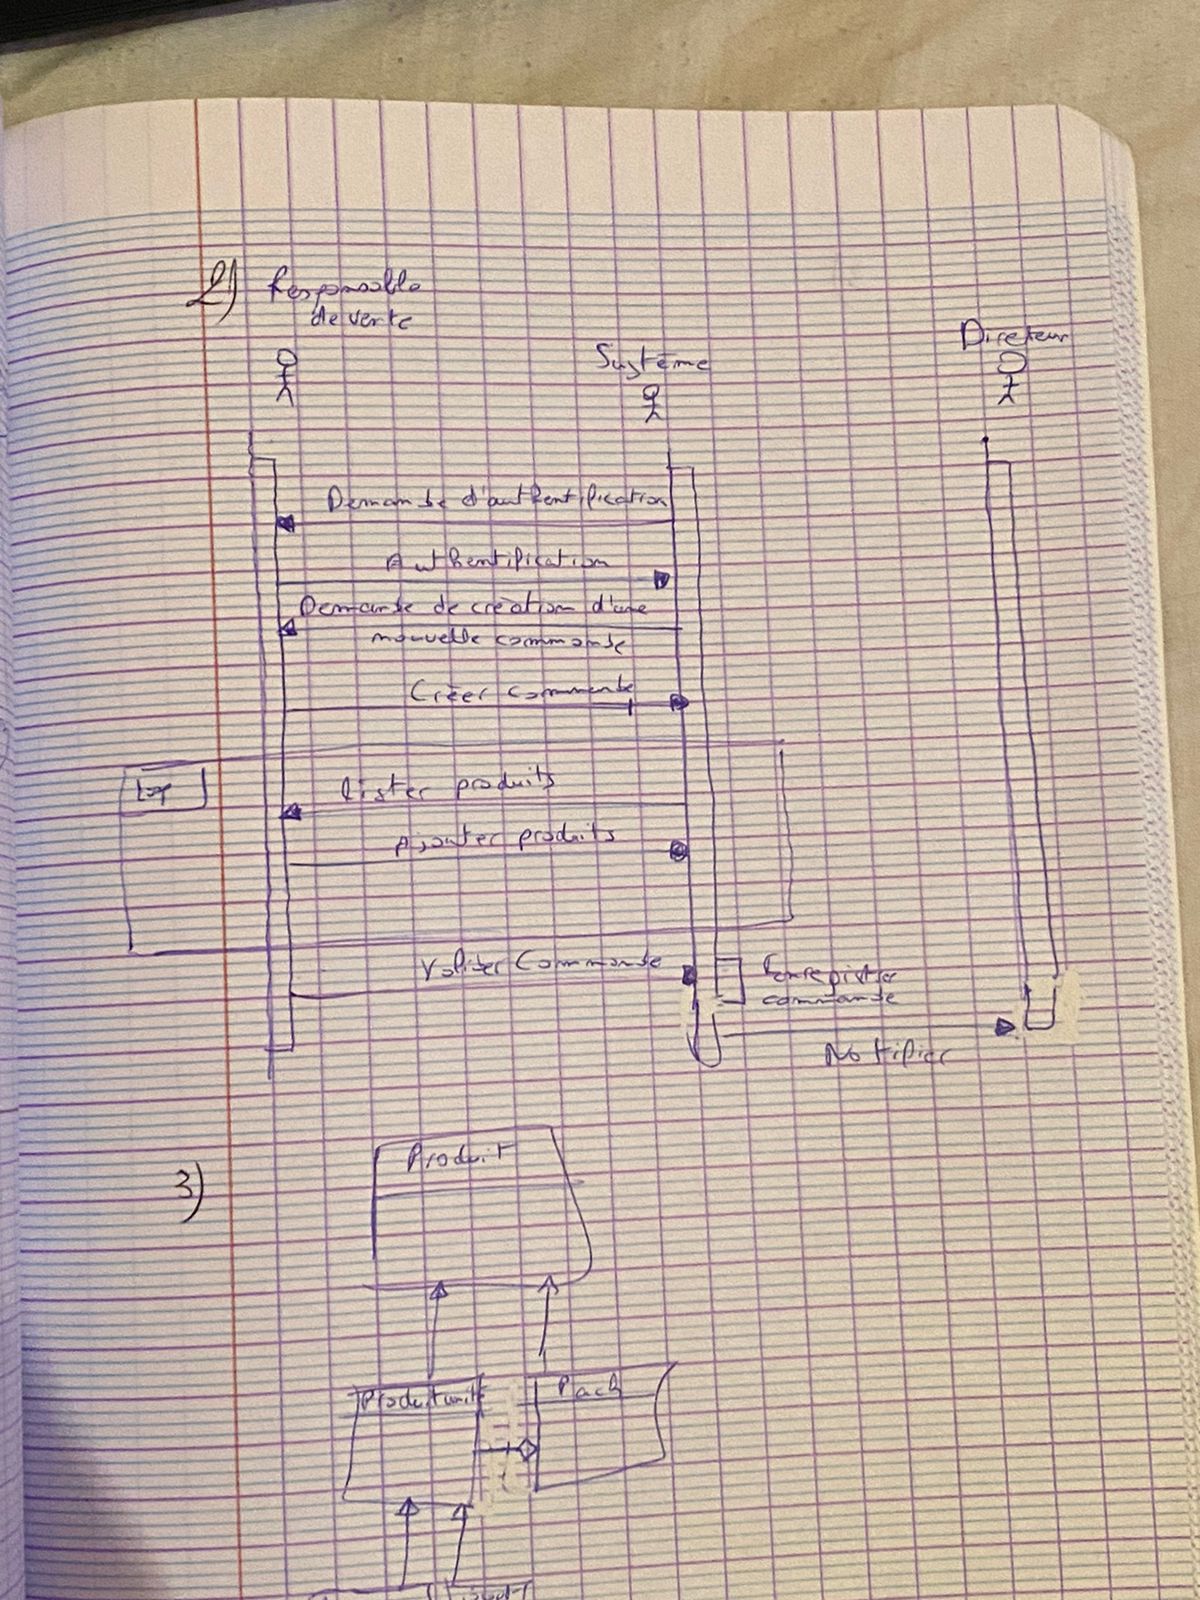 2) Responsable
de vente
Système
Direteur
Demande d'authentification
Authentification
Demande de création d'une
nouvelle commande
Créer commande
Loop
lister produits
Ajouter produits
Valider Commande
Enregistrer
commande
Notifier
3)
Produit
Produit unit
Pack